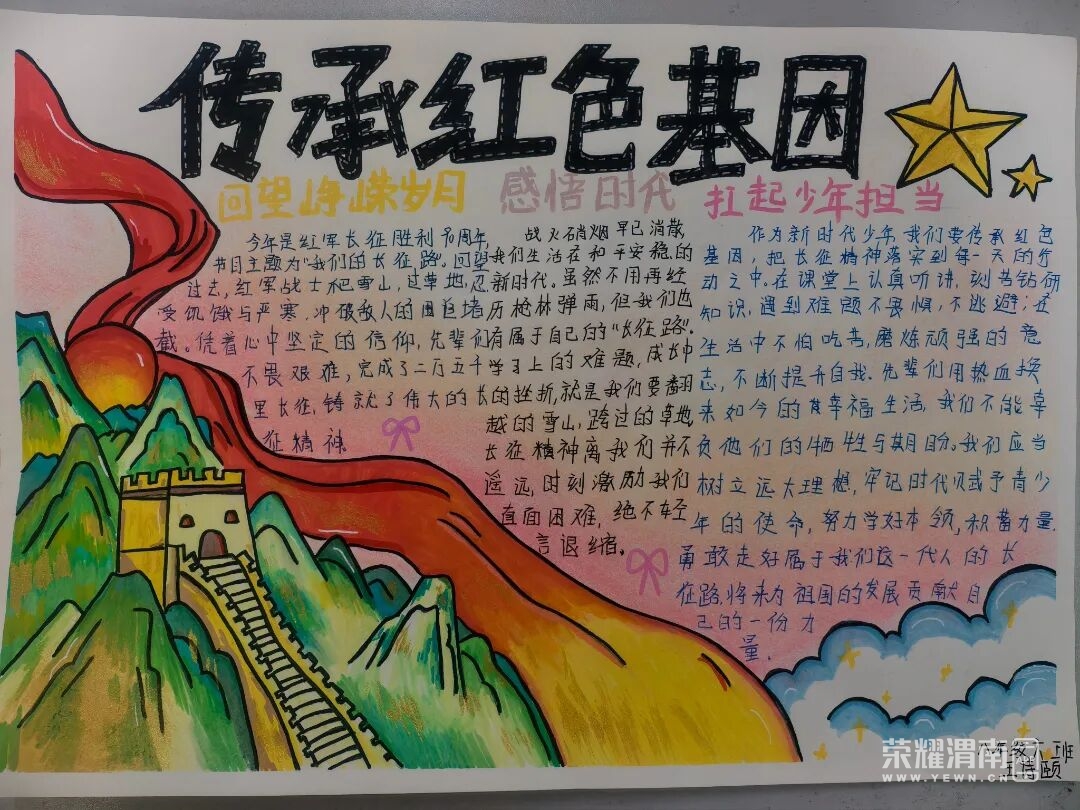 传承红色基因
回望峥嵘岁月
今年是红军长征胜利90周年,
节目主题为"我们的长征路"。回望
过去,红军战士把雪山,过草地,忍
受饥饿与严寒.冲破敌人的围追堵
截。凭着心中坚定的信仰,先辈们
不畏艰难,完成了二万五千
里长征,铸就了伟大的长
征精神.
感悟时代
战火硝烟早已消散,
我们生活在和平安稳的
新时代。虽然不用再经
历枪林弹雨,但我们也
有属于自己的"长征路".
学习上的难题,成长中
的挫折,就是我们要翻
越的雪山,跨过的草地,
长征精神离我们并不
遥远,时刻激励我们
直面困难,绝不轻
言退缩。
扛起少年担当
作为新时代少年,我们要传承红色
基因,把长征精神落实到每一天的行
动之中。在课堂上认真听讲,刻苦钻研
知识,遇到难题不畏惧,不逃避;在
生活中不怕吃苦,磨炼顽强的意
志,不断提升自我.先辈们用热血换
来如今的幸福生活,我们不能辜
负他们的牺牲与期盼。我们应当
树立远大理想,牢记时代赋予青少
年的使命,努力学好本领,积蓄力量.
勇敢走好属于我们这一代人的长
征路.将来为祖国的发展贡献自
己的一份力
量.
八年级六班
王诗颐
荣耀渭南网
WWW.YEWN.CN